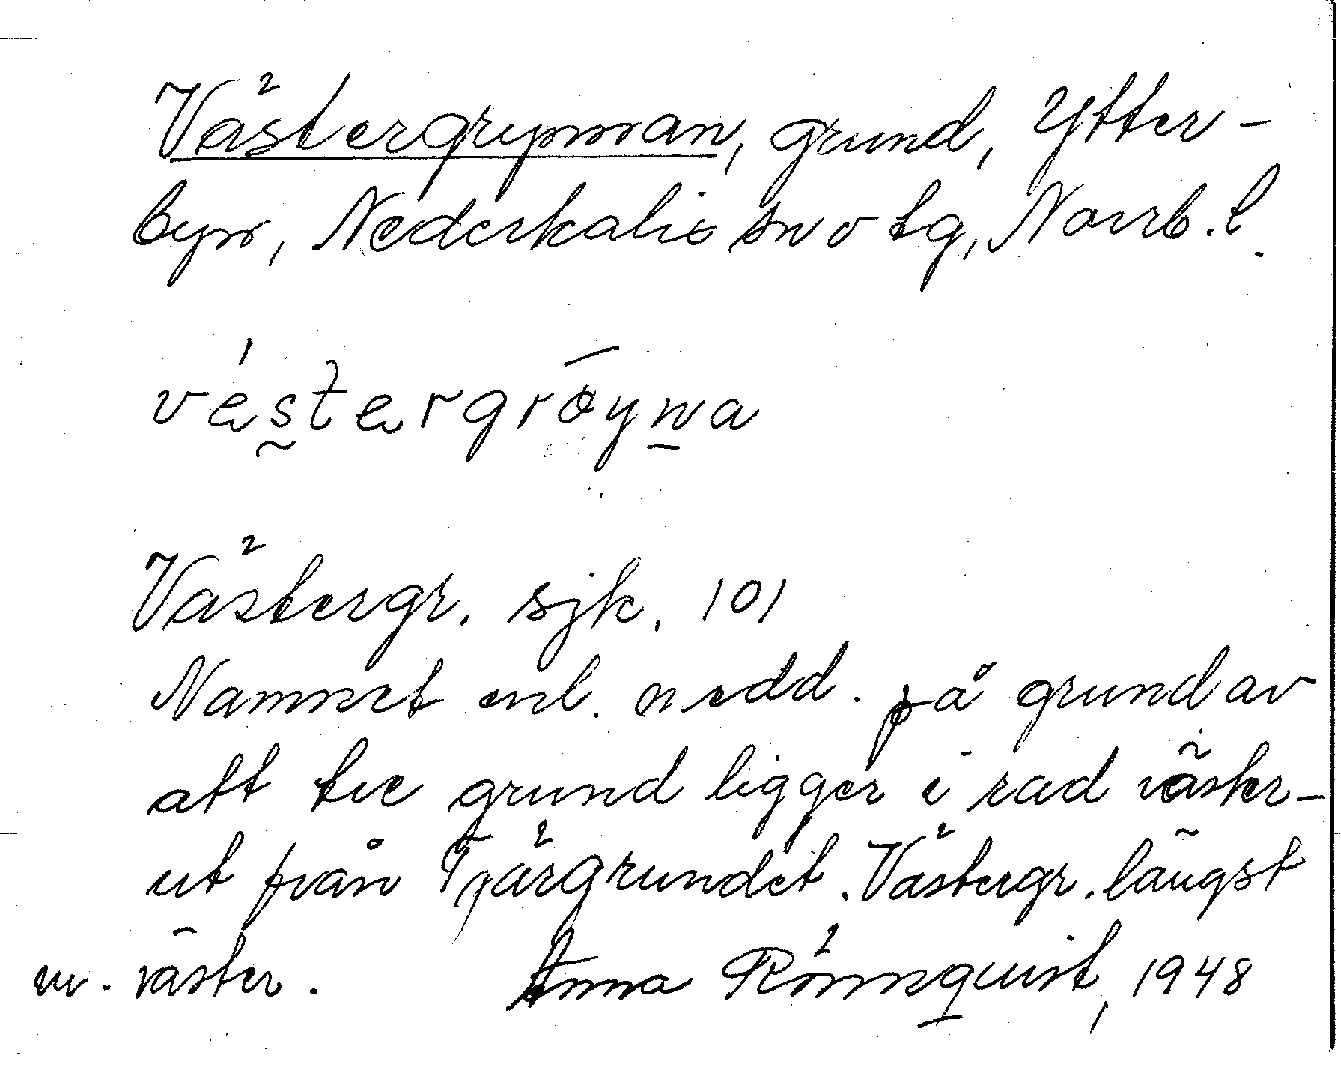 Västergrynnan, grund, Ytter-
byn, Nederkalix sn o tg, Norrb. l.
véstergröyna
Västergr. sjk. 101
Namnet enl. medd. på grund av
att tre grund ligger i rad väster-
ut från Tjärgrundet. Västergr. längst
m. väster. Anna Rönnquist, 1948